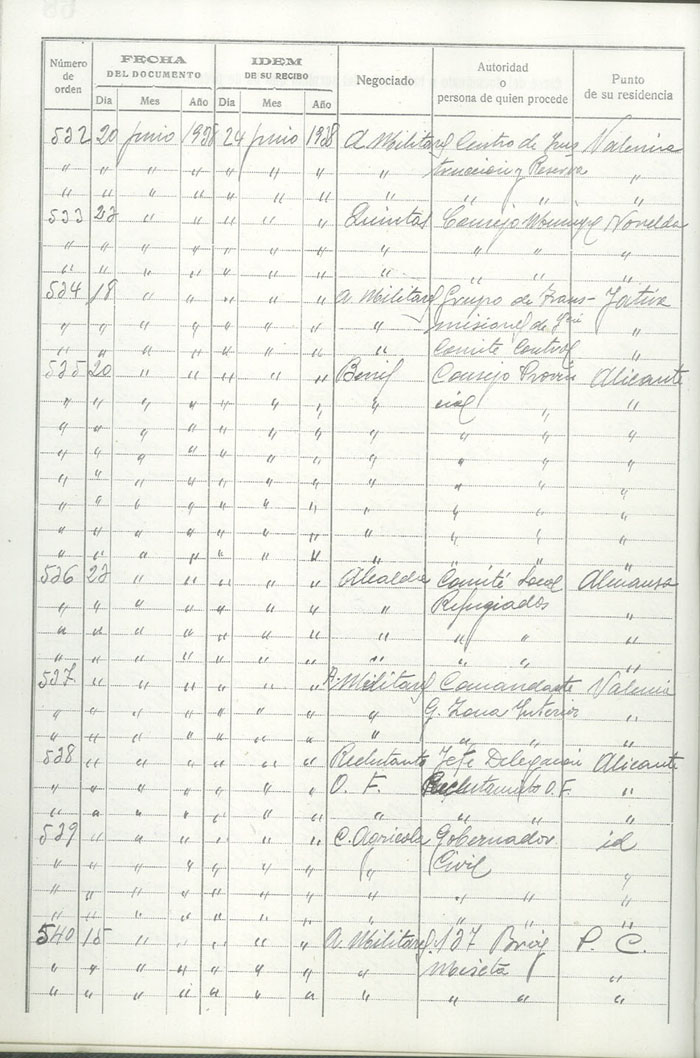 Número de orden | FECHA DEL DOCUMENTO | IDEM DE SU RECIBO | Negociado | Autoridad o persona de quien procede | Punto de su residencia
Dia Mes Año Dia Mes Año
532 20 junio 1938 24 junio 1938 A. Militares Centro de Ins Valencia
" " " " " " " trucción y Reserva "
" " " " " " " " " " "
533 23 " " " " " Quintas Consejo Municipal Novelda
" " " " " " " " " " "
" " " " " " " " " " "
534 18 " " " " " A. Militares Grupo de Trans- Jativa
" " " " " " " " misiones de "
" " " " " " " " Comité Control "
535 20 " " " " " Consejo Provin Alicante
" " " " " " " " cial " "
" " " " " " " " " " "
" " " " " " " " " " "
" " " " " " " " " " "
" " " " " " " " " " "
" " " " " " " " " " "
" " " " " " " " " " "
536 23 " " " " " Alcaldia Comité Local Almansa
" " " " " " " " Refugiados "
" " " " " " " " " " "
" " " " " " " " " " "
537 " " " " " " A. Militares Comandante Valencia
" " " " " " " " G. Zona Interior "
" " " " " " " " " " "
538 " " " " " " Reclutanto Jefe Delegación Alicante
" " " " " " " O. F. Reclutamto O.F. "
" " " " " " " " " " "
539 " " " " " " C. Agricola Gobernador id
" " " " " " " " Civil "
" " " " " " " " " " "
" " " " " " " " " " "
540 15 " " " " " A. Militares 137 Brig P. C.
" " " " " " " " Mixta "
" " " " " " " " " " "